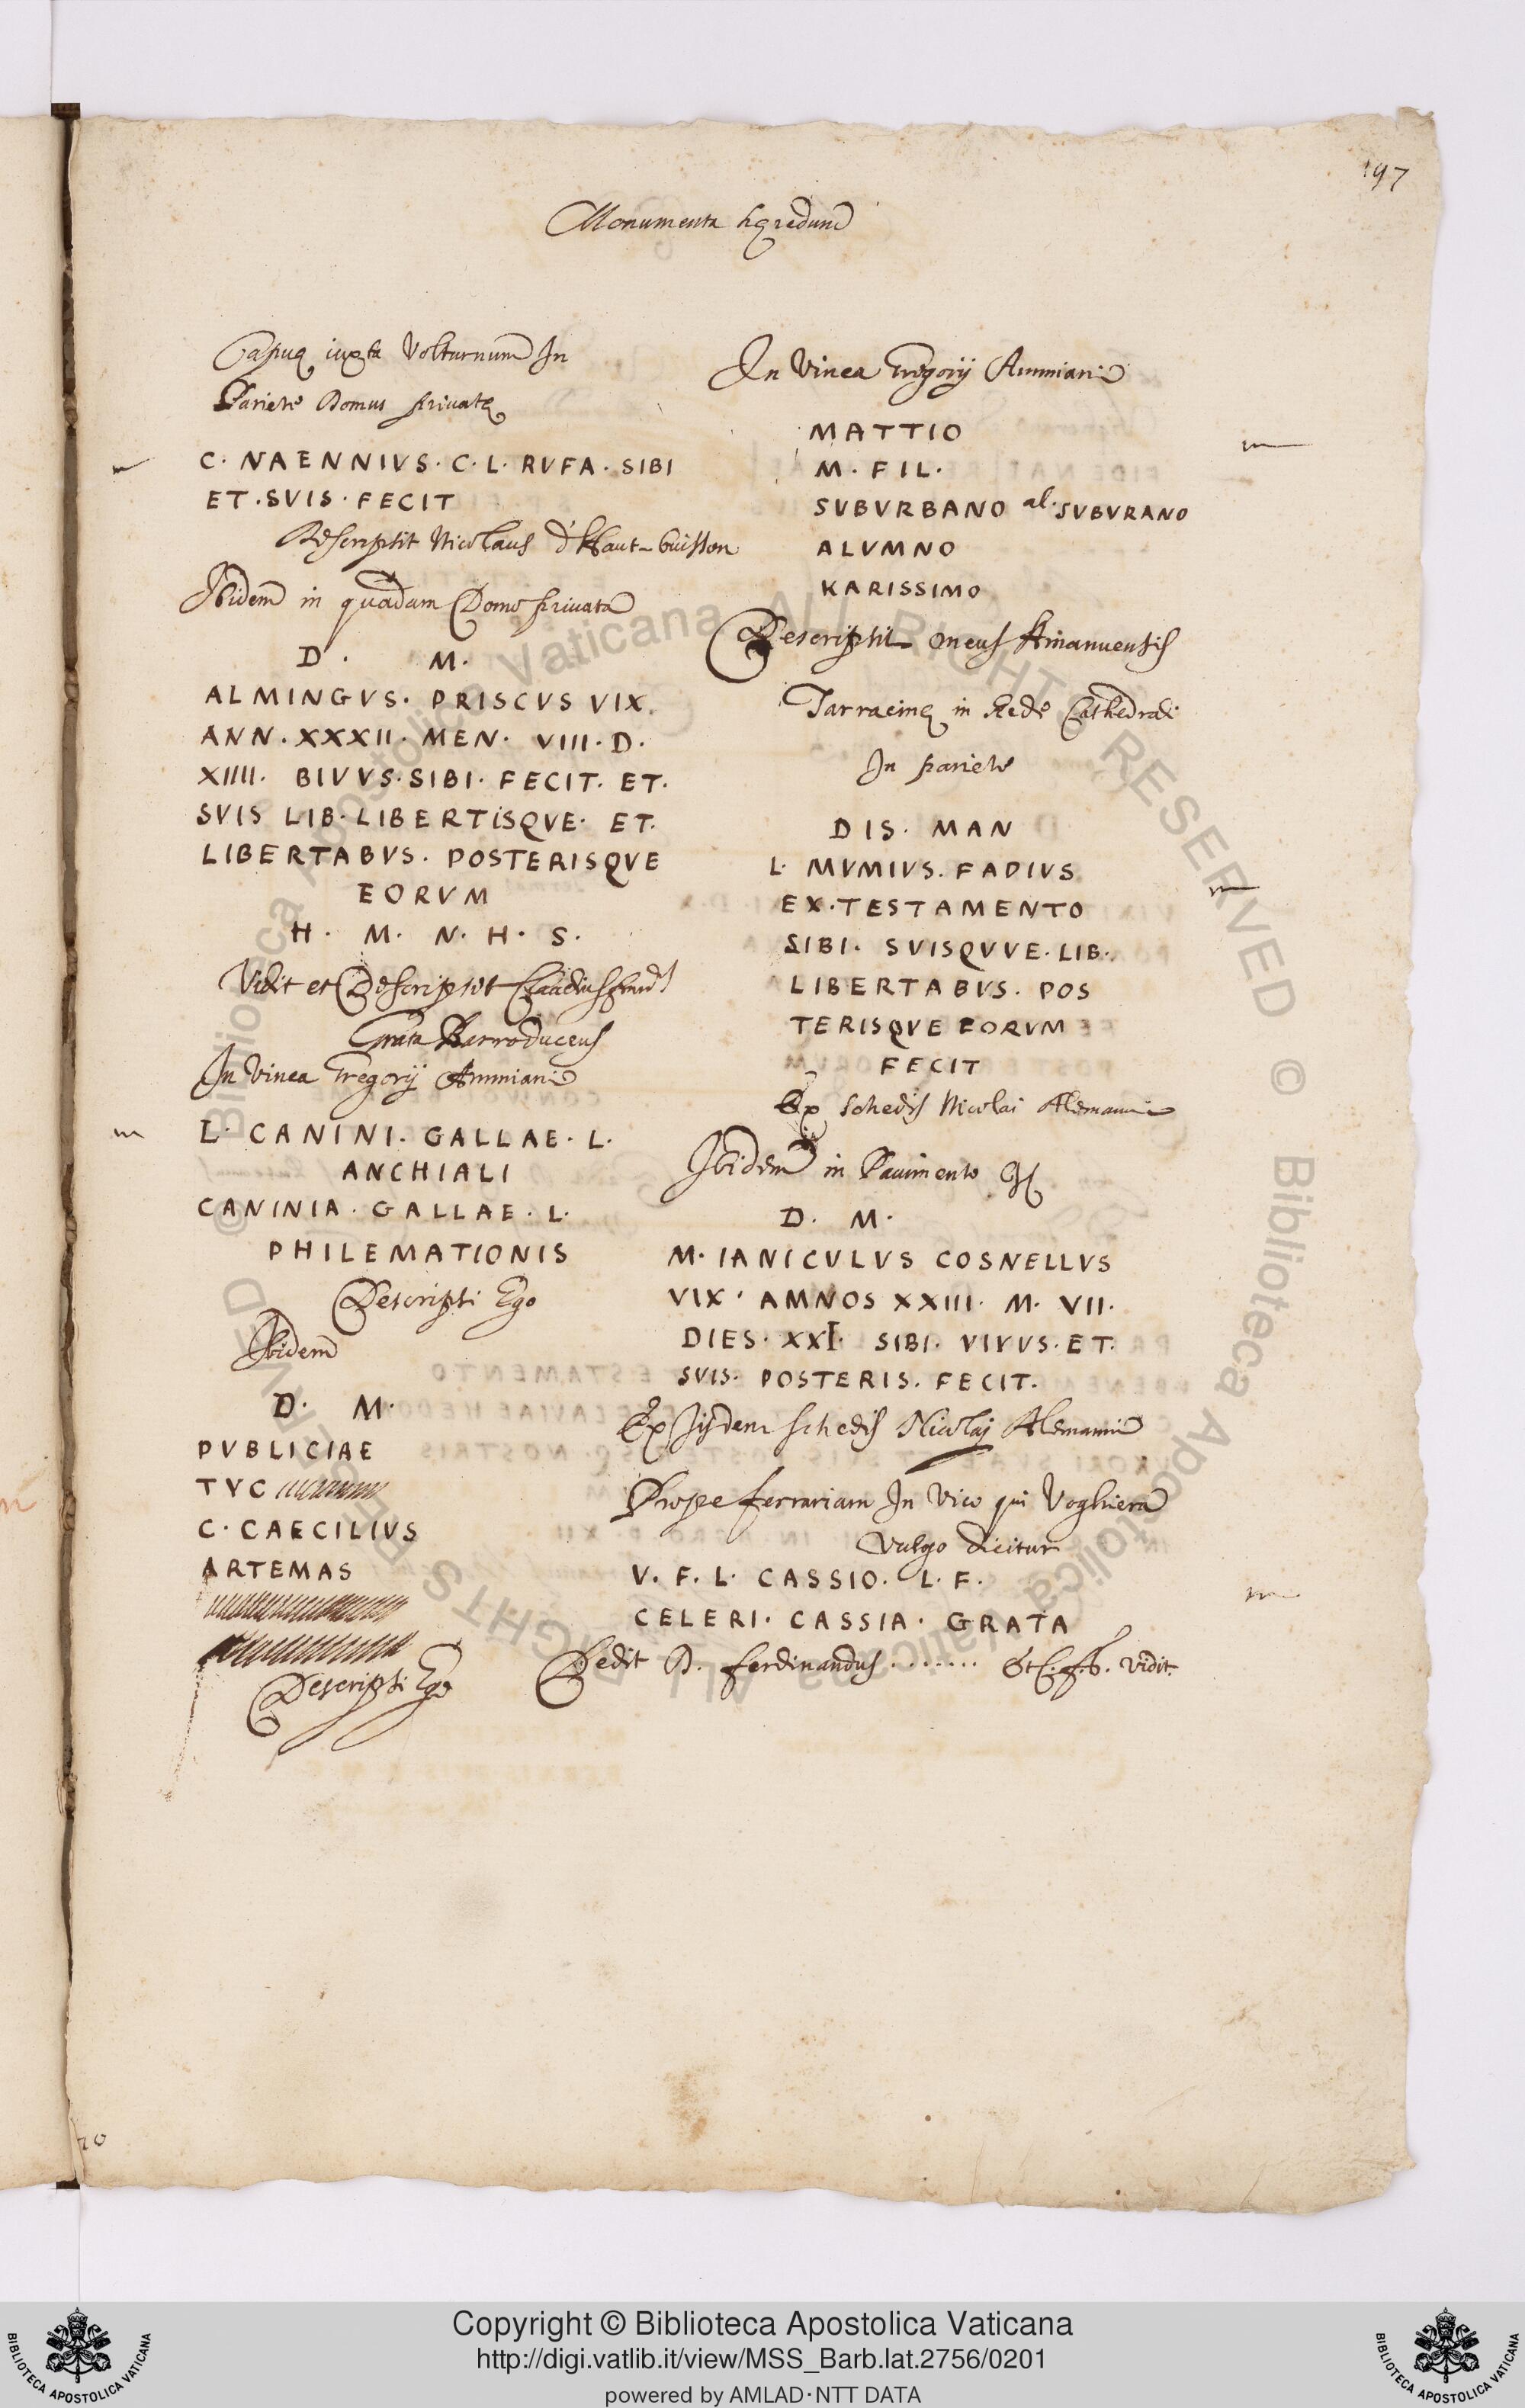 197
Monumenta hęredum
Capuę iuxta Volturnum In
Pariete Domus privatę
C. NAENNIVS. C. L. RVFA. SIBI
ET. SVIS. FECIT
Descripsit Nicolaus d'Haut-buisson
Ibidem in quadam Domo privata
D. M.
ALMINGVS. PRISCVS VIX.
ANN. XXXII. MEN. VIII. D.
XIIII. BIVVS. SIBI. FECIT. ET.
SVIS LIB. LIBERTISQVE. ET.
LIBERTABVS. POSTERISQVE
EORVM
H. M. N. H. S.
Vidit et Descripsit Claudius
Barroduceus
In Vinea Gregorij Ammiani
L. CANINI. GALLAE. L.
ANCHIALI
CANINIA. GALLAE. L.
PHILEMATIONIS
Descripsi Ego
Ibidem
D. M.
PVBLICIAE
TYC
C. CAECILIVS
ARTEMAS
Descripsi Ego
In Vinea Gregorij Ammiani
MATTIO
M. FIL.
SVBVRBANO al. SVBVRANO
ALVMNO
KARISSIMO
Descripsit meus Amanuensis
Tarracinę in Aede Cathedrali
In pariete
DIS. MAN
L. MVMIVS. FADIVS
EX. TESTAMENTO
SIBI. SVISQVVE. LIB.
LIBERTABVS. POS
TERISQVE EORVM
FECIT
Ex schedis Nicolai Alemanni
Ibidem in Pavimento
D. M.
M. IANICVLVS COSNELLVS
VIX. AMNOS XXIII. M. VII.
DIES. XXI. SIBI. VIVVS. ET.
SVIS. POSTERIS. FECIT.
Ex Iisdem schedis Nicolaj Alemanni
Prope ferrariam In Vico qui Voghiera
vulgo dicitur
V. F. L. CASSIO. L. F.
CELERI. CASSIA. GRATA
Dedit D. ferdinandus ....... vidit.
20
Copyright © Biblioteca Apostolica Vaticana
http://digi.vatlib.it/view/MSS_Barb.lat.2756/0201
powered by AMLAD·NTT DATA
BIBLIOTECA APOSTOLICA VATICANA
BIBLIOTECA APOSTOLICA VATICANA
© Biblioteca Apostolica Vaticana ALL RIGHTS RESERVED © Biblioteca Apostolica Vaticana ALL RIGHTS RESERVED